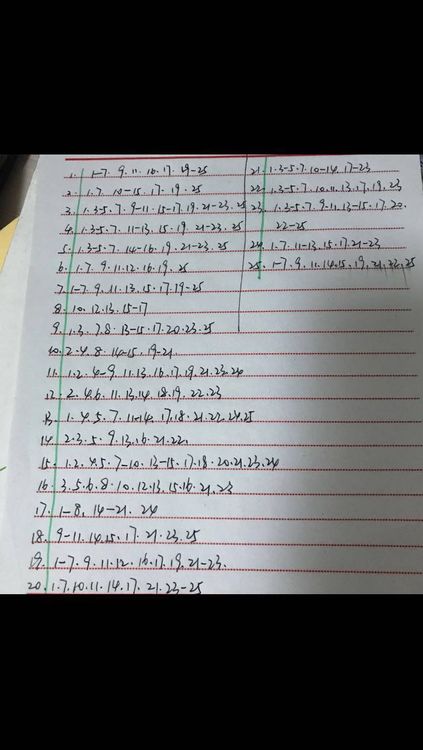 1. 1-7. 9. 11. 16. 17. 19-25
2. 1. 7. 10-15. 17. 19. 25
3. 1. 3-5. 7. 9-11. 15-17. 19. 21-23. 25
4. 1. 3-5. 7. 11-13. 15. 19. 21-23. 25
5. 1. 3-5. 7. 14-16. 19. 21-23. 25
6. 1. 7. 9. 11. 12. 16. 19. 25
7. 1-7. 9. 11. 13. 15. 17. 19-25
8. 10. 12. 13. 15-17
9. 1. 3. 7. 8. 13-15. 17. 20. 23. 25
10. 2. 4. 8. 14-15. 19-21.
11. 1. 2. 4-9. 11. 13. 16. 17. 19. 21. 23. 24
12. 2. 4. 6. 11. 13. 14. 18. 19. 22. 23
13. 1. 4. 5. 7. 11-14. 17. 18. 21. 22. 24. 25
14. 2. 3. 5. 9. 13. 16. 21. 22.
15. 1. 2. 4. 5. 7-10. 13-15. 17. 18. 20. 21. 23. 24
16. 3. 5. 6. 8. 10. 12. 13. 15. 16. 21. 23
17. 1-8. 14-21. 24
18. 9-11. 14. 15. 17. 21. 23. 25
19. 1-7. 9. 11. 12. 16. 17. 19. 21-23.
20. 1. 7. 10. 11. 14. 17. 21. 23-25
21. 1. 3-5. 7. 10-14. 17-23
22. 1. 3-5. 7. 10. 11. 13. 17. 19. 23
23. 1. 3-5. 7. 9-11. 13-15. 17. 20.
22-25
24. 1. 7. 11-13. 15. 17. 21-23
25. 1-7. 9. 11. 14. 15. 19. 21. 22. 25